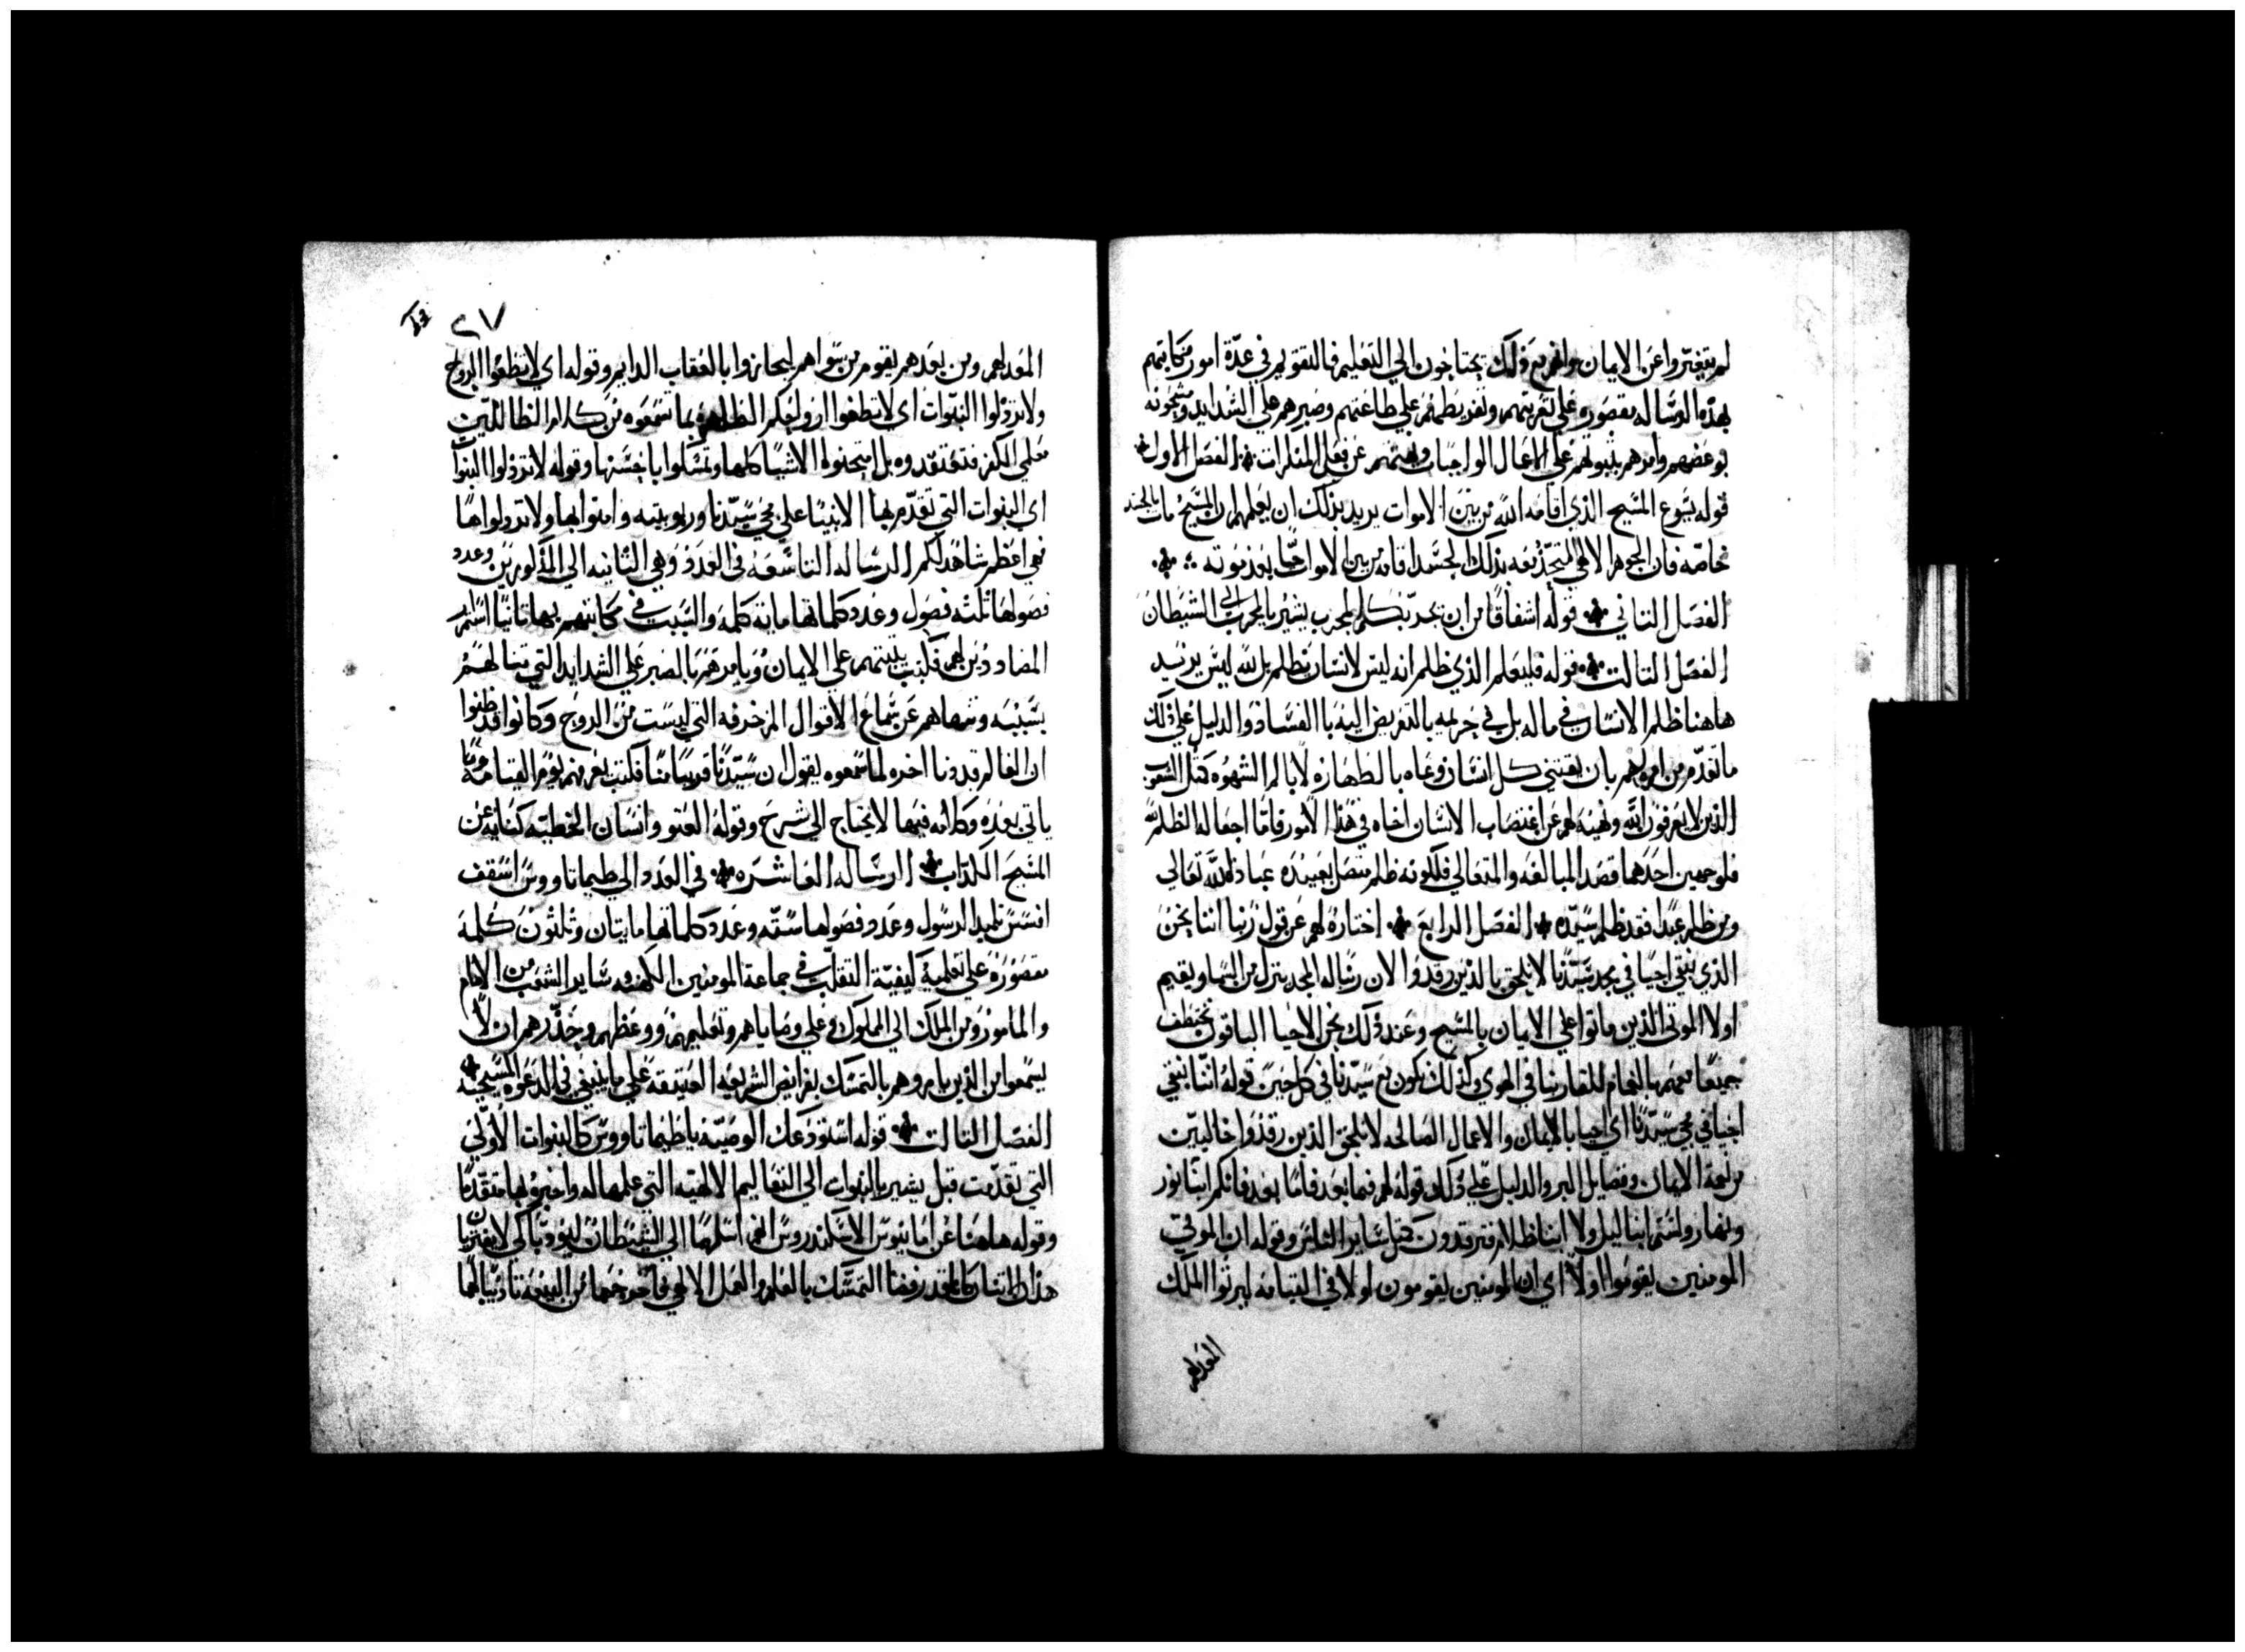 لم يتغيروا عن الايمان وانهم مع ذلك يحتاجون الي التعليم فالتقويم في عدة امور مكاتبتهم
بهذه الرساله مقصوره علي تعزيتهم وتقريظهم علي طاعتهم وصبرهم علي الشدايد
بوعظهم وامرهم علي الاعمال الواجبات عن فعل المنكرات الفصل الاول
قوله يسوع المسيح الذي اقامه الله من بين الاموات يريد بذلك ان يعلمهم ان المسيح مات بالجسد
خاصه فان الجوهر الالاهي المتحد معه بذلك الجسد اقامه من بين الاموات حيا بعد موته
الفصل التاني قوله اشفاقا من ان يجربكم المجرب يشير بالمجرب الي الشيطان
الفصل التالت قوله فليعلم الذي ظلم انه ليس لانسان يظلم بل لله ليس يريد
هاهنا ظلم الانسان في ماله بل في حريمه بالتعريض اليه بالفساد والدليل علي ذلك
ما تقدم من امره لهم بان يقتني كل انسان وعاه بالطهاره لا بالم الشهوه كمتل الشعوب
الذين لا يعرفون الله ونهيه لهم عن اغتصاب الانسان اخاه في هذا الامور فاما اجعاله الظلم لله
فلوجهين احدهما قصد المبالغه والتعالي فلكونه ظلم متصل بعبيده عباد الله تعالي
ومن ظلم عبدا فقد ظلم سيده الفصل الرابع اختاره لهم عن قول ربنا اننا نحن
الذي نبقي احيا في مجد سيدنا لا نلحق بالذين رقدوا لان رساله المجد ينزل من السما ويقيم
اولا الموتي الذين ماتوا علي الايمان بالمسيح وعند ذلك نحن الاحيا الباقون نختطف
جميعا معهم بالغمام للقا ربنا في الهوي وكذلك نكون مع سيدنا في كل حين قوله اننا نبقي
احيا في مجي سيدنا اي احيا بالايمان والاعمال الصالحه لا نلحق الذين رقدوا خاليين
من نعمة الايمان وفضايل البر والدليل علي ذلك قوله لهم فيما بعد فاما بعد فانكم ابنا نور
ونهار ولستم ابنا ليل ولا ابنا ظلام فترقدون كمتل ساير الناس وقوله ان الموتي
المومنين يقوموا اولا اي ان المومنين يقومون اولا في القيامه ليرثوا الملك
المعد لهم
٢٧
المعد لهم ومن بعدهم يقوم من سواهم ليجازوا بالعقاب الدايم وقوله اي لا تطفوا الروح
ولا ترذلوا النبوات اي لا تطفوا بما تسمعوه من كلام الظالين
معلمي الكفر فتعتقدوه بل امتحنوا الاشيا كلها وتمسكوا باحسنها وقوله لا ترذلوا النبوات
اي النبوات التي تقدم بها الانبيا علي مجي سيدنا وربوبيته وامنوا بها ولا ترذلوها
فهي اعظم شاهد لكم الرساله التاسعه في العدد وهي التانيه الي المذكورين وعدد
فصولها تلته فصول وعدد كلماتها مايه كلمه والسبب في مكاتبتهم بها تانيا استمرار
المضاددين لهم فكتب يثبتهم علي الايمان ويامرهم بالصبر علي الشدايد التي تنالهم
بسببه ونهاهم عن سماع الاقوال المزخرفه التي ليست من الروح وكانوا قد ظنوا
ان العالم قد دنا اخره لما سمعوه يقول ان سيدنا قريبا منا فكتب يعرفهم يوم القيامه وما
ياتي بعده وكلامه فيها لا يحتاج الي شرح وقوله العتو وانسان الخطيه كنايه عن
المسيح الكذاب الرساله العاشره في العدد الي طيماتاووس اسقف
افسس تلميد الرسول وعدد فصولها سته وعدد كلماتها مايتان وثلثون كلمه
مقصوره علي تعليمه كيفية التقلب في جماعة المومنين الكهنه وساير الشعب من الامام
والمامور ومن الملك الي المملوك وعلي وصاياهم وتعليمهم ووعظهم وحذرهم ان لا
يسمعوا من الذين يامروهم بالتمسك بفرايض الشريعه العتيقه علي ما ينبغي في الدعوه المسيحيه
الفصل التالت قوله استودعك الوصيه يا طيماتاووس كالنبوات الاولي
التي تقدمت قبل يشير بالنبوات الي التعاليم الالهيه التي علمها له واخبره بها متقدما
وقوله هاهنا عن امانيوس الاسكندروس انهما اسلمهما الي الشيطان ليودبا كي لا يفتريا
هذان الاتنان كانا قد رفضا التمسك بالعلم والعمل الالاهي فاخرجهما من البيعه تاديبا لهما